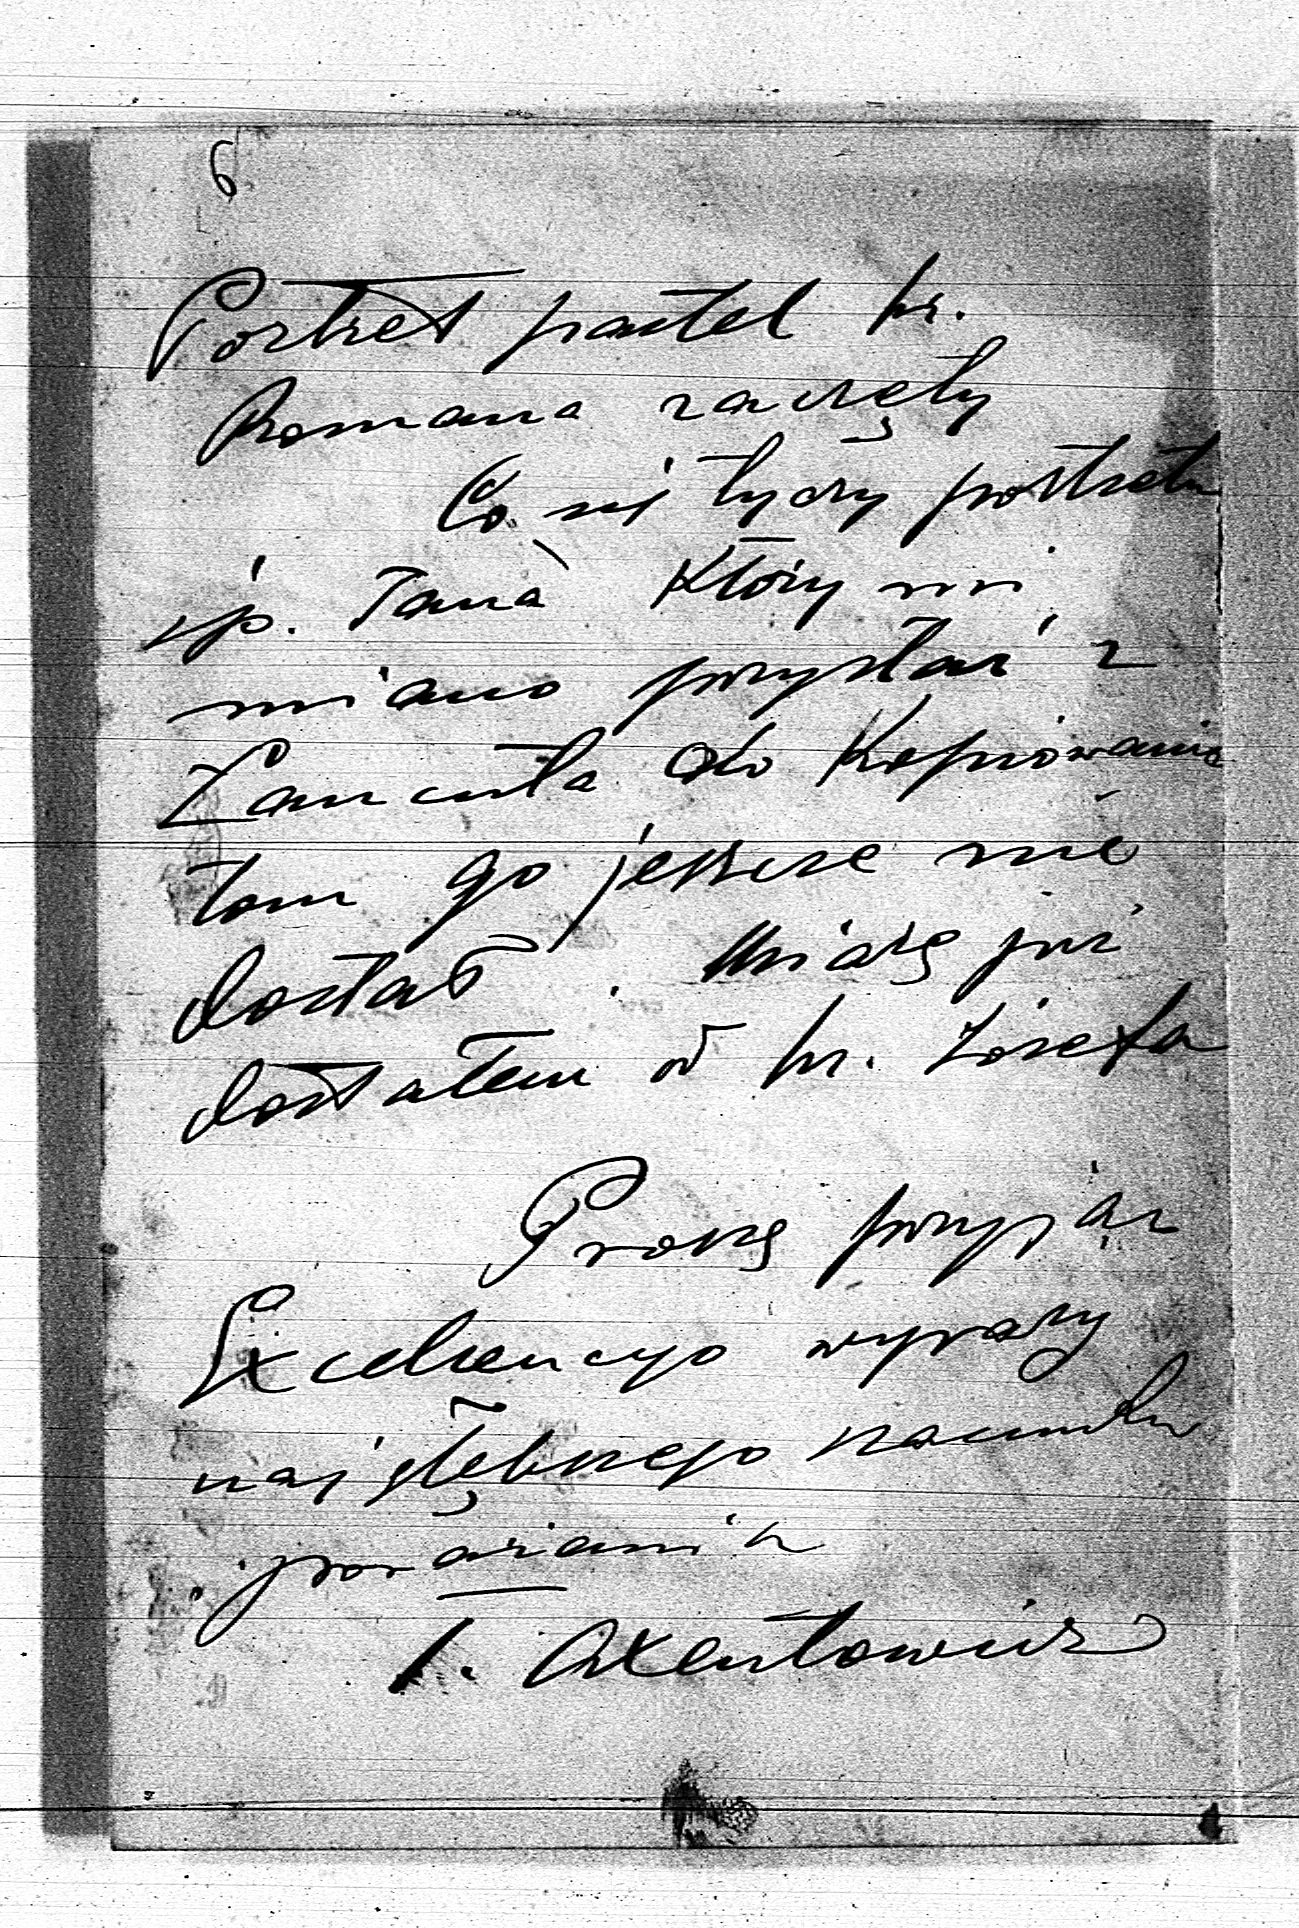 6
Portret pastel hr.
Romana zaczęty
Co się tyczy portretu
śp. Jana który mi
miano przysłać z
Łańcuta do kopiowania
tom go jeszcze nie
dostał. Miarę już
dostałem od hr. Józefa
Proszę przyjąc
Excelencyo wyrazy
najgłębszego szacunku
i poważania
T. Axentowicz